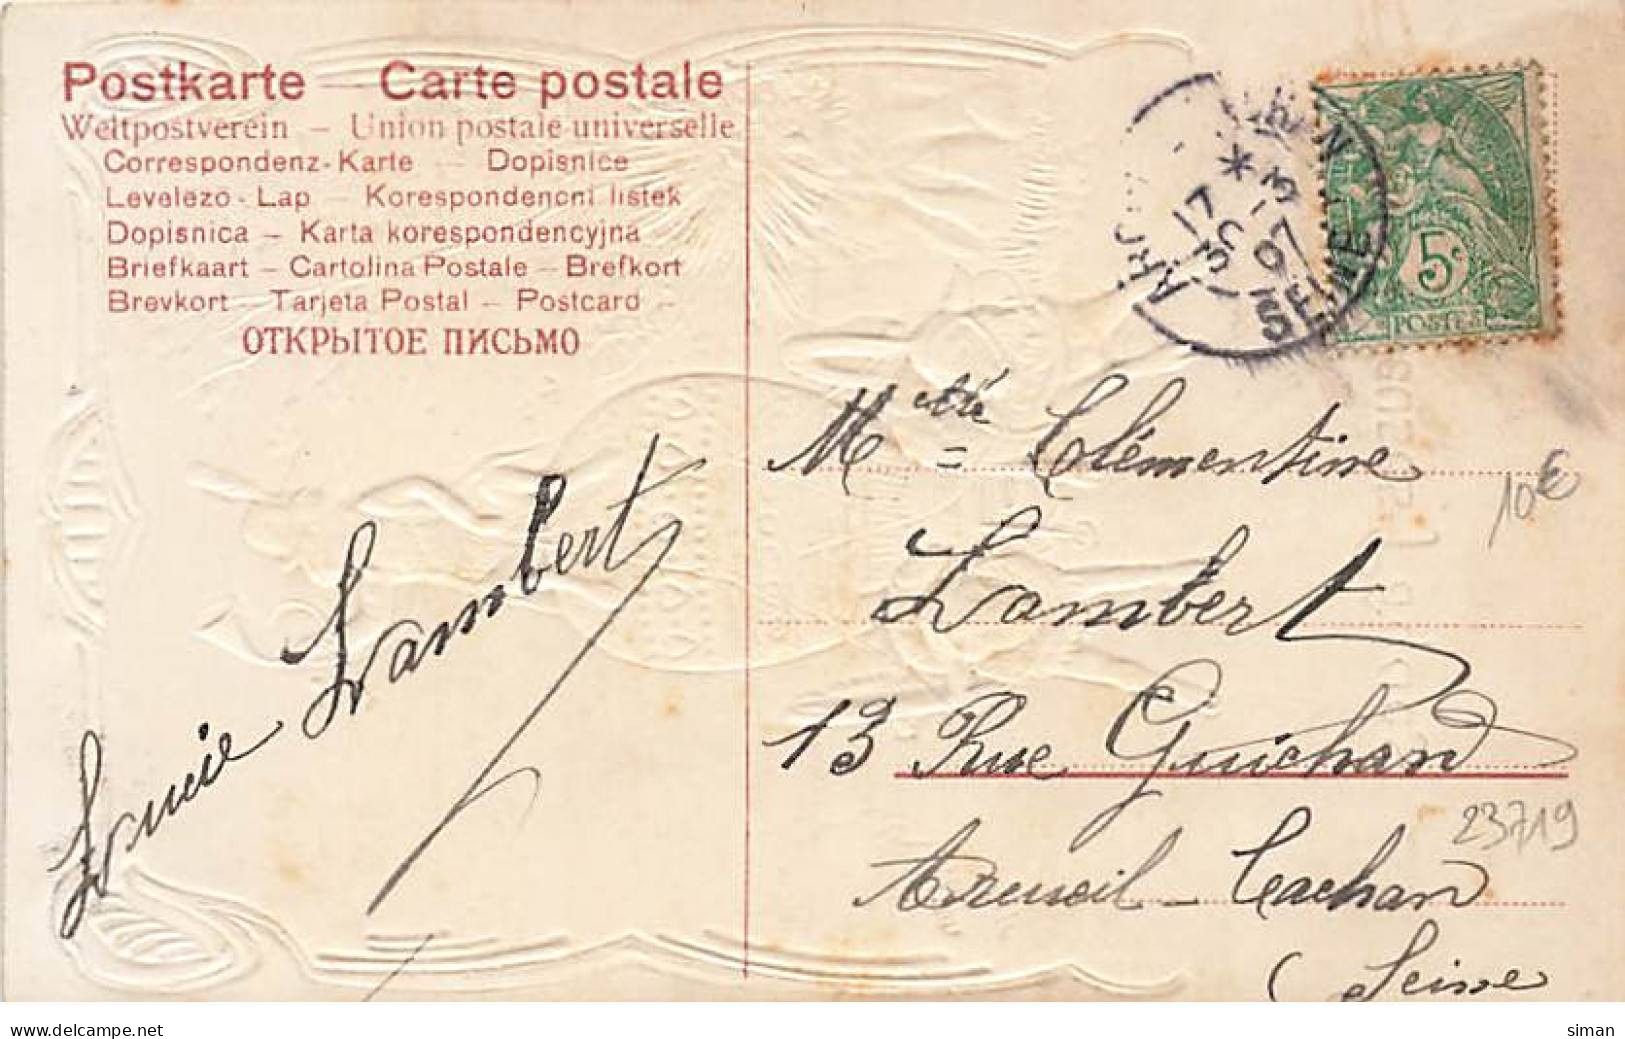 Postkarte — Carte postale
Weltpostverein — Union postale universelle
Correspondenz-Karte — Dopisnice
Levelezo-Lap — Korespondencni listek
Dopisnica — Karta korespondencyjna
Briefkaart — Cartolina Postale — Brefkort
Brevkort — Tarjeta Postal — Postcard —
ОТКРЫТОЕ ПИСЬМО
17
3-
07
SEINE
5c
POSTES
Melle Clémentine
Lambert
13 Rue Guichard
Arcueil-Cachan
(Seine
Lucie Lambert
10€
23719
www.delcampe.net
siman